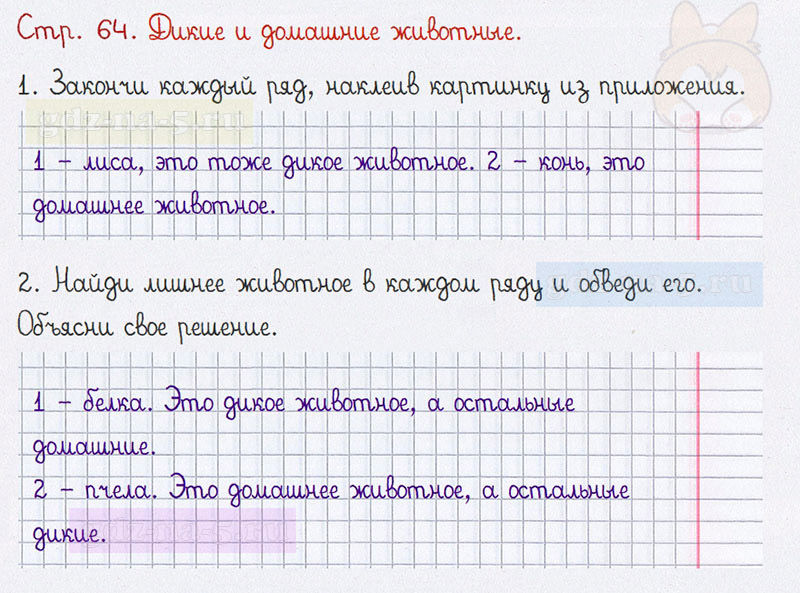 Стр. 64. Дикие и домашние животные.
1. Закончи каждый ряд, наклеив картинку из приложения.
gdz-na-5.ru
1 – лиса, это тоже дикое животное. 2 – конь, это
домашнее животное.
2. Найди лишнее животное в каждом ряду и обведи его.
gdz-na-5.ru
Объясни свое решение.
1 – белка. Это дикое животное, а остальные
домашние.
2 – пчела. Это домашнее животное, а остальные
дикие.
gdz-na-5.ru